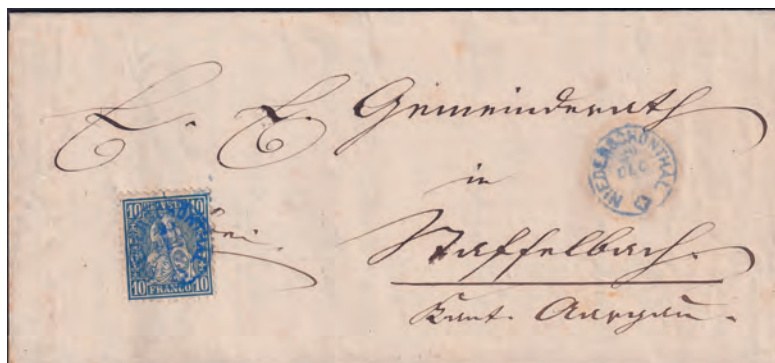 L. L. Gemeinderath
in
Staffelbach.
Kant. Aargau.
NIEDERSCHÖNTHAL
DEC
10 10
10 FRANCO 10